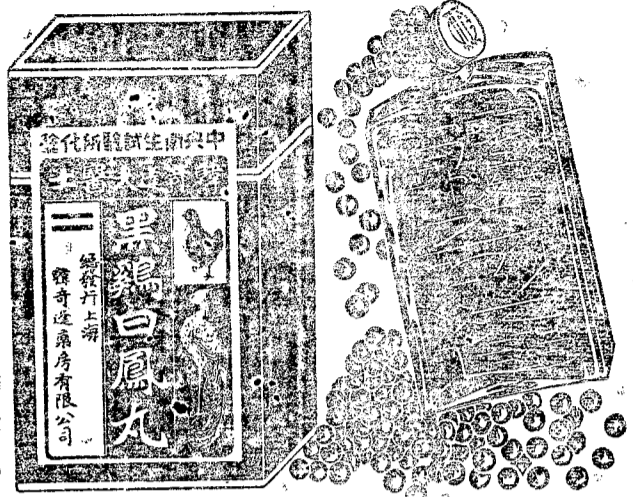 中央衛生試驗所化驗
黑鷄白鳳丸
總發行上海
韓奇逢藥房有限公司